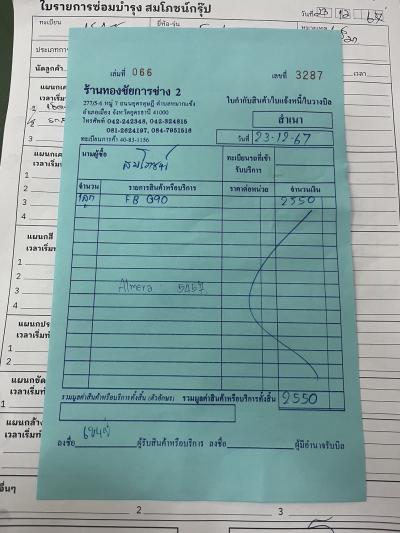 ใบรายการซ่อมบำรุง สมโภชน์กรุ๊ป
วันที่ 23 12 67
ทะเบียน
ยี่ห้อ-รุ่น
ประเภทการ
นัดลูกค้า
เวลา
แผนกเค
เวลาเริ่มท
เล่มที่ 066
เลขที่ 3287
ร้านทองชัยการช่าง 2
277/5-6 หมู่ 7 ถนนอุดรดุษฎี ตำบลหมากแข้ง
อำเภอเมือง จังหวัดอุดรธานี 41000
โทรศัพท์ 042-242348, 042-324815
081-2624197, 084-7951516
ทะเบียนการค้า 40-83-1156
ใบกำกับสินค้า/ใบแจ้งหนี้/ใบวางบิล
สำเนา
วันที่ 23-12-67
นามผู้ซื้อ สมโภชน์
ทะเบียนรถที่เข้า
รับบริการ
จำนวน รายการสินค้าหรือบริการ ราคาต่อหน่วย จำนวนเงิน
1ลูก FB Q90 2550
Almera 5057
รวมมูลค่าสินค้าหรือบริการทั้งสิ้น (ตัวอักษร) รวมมูลค่าสินค้าหรือบริการทั้งสิ้น 2550
ลงชื่อ ผู้รับสินค้าหรือบริการ ลงชื่อ ผู้มีอำนาจรับบิล
แผนกสี
เวลาเริ่มทำ
1
2
3
4
แผนกประ
เวลาเริ่มทำ
1
2
แผนกขัด
เวลาเริ่มทำ
แผนกล้าง
เวลาเริ่มทำ
อื่นๆ
2
3